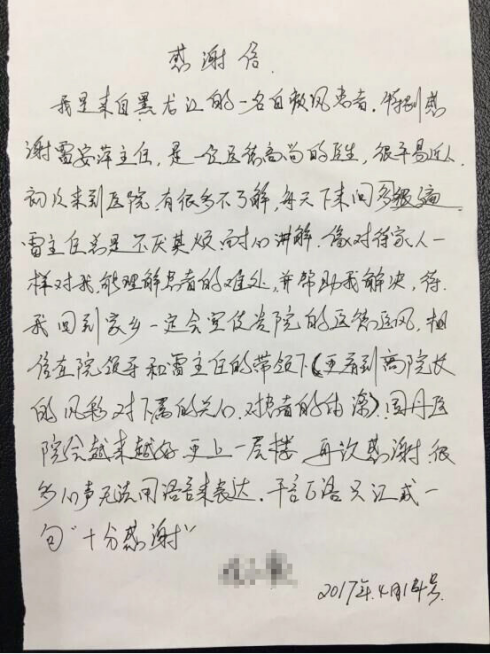 感谢信.
我是来自黑龙江的一名白癜风患者.特别感
谢雷安萍主任,是一位医德高尚的医生,很平易近人
初次来到医院,有很多不了解,每天下来问多级遍
雷主任总是不厌其烦耐心讲解.像对待家人一
样对我,能理解患者的难处,并帮助我解决,待
我回到家乡一定会宣传贵院的医德医风,相
信在院领导和雷主任的带领下(更看到高院长
的风彩对下属的关心.对患者的)国丹医
院会越来越好更上一层楼.再次感谢.很
多心声无法用语言来表达.千言万语只汇成一
句"十分感谢"
2017年.4月14号.